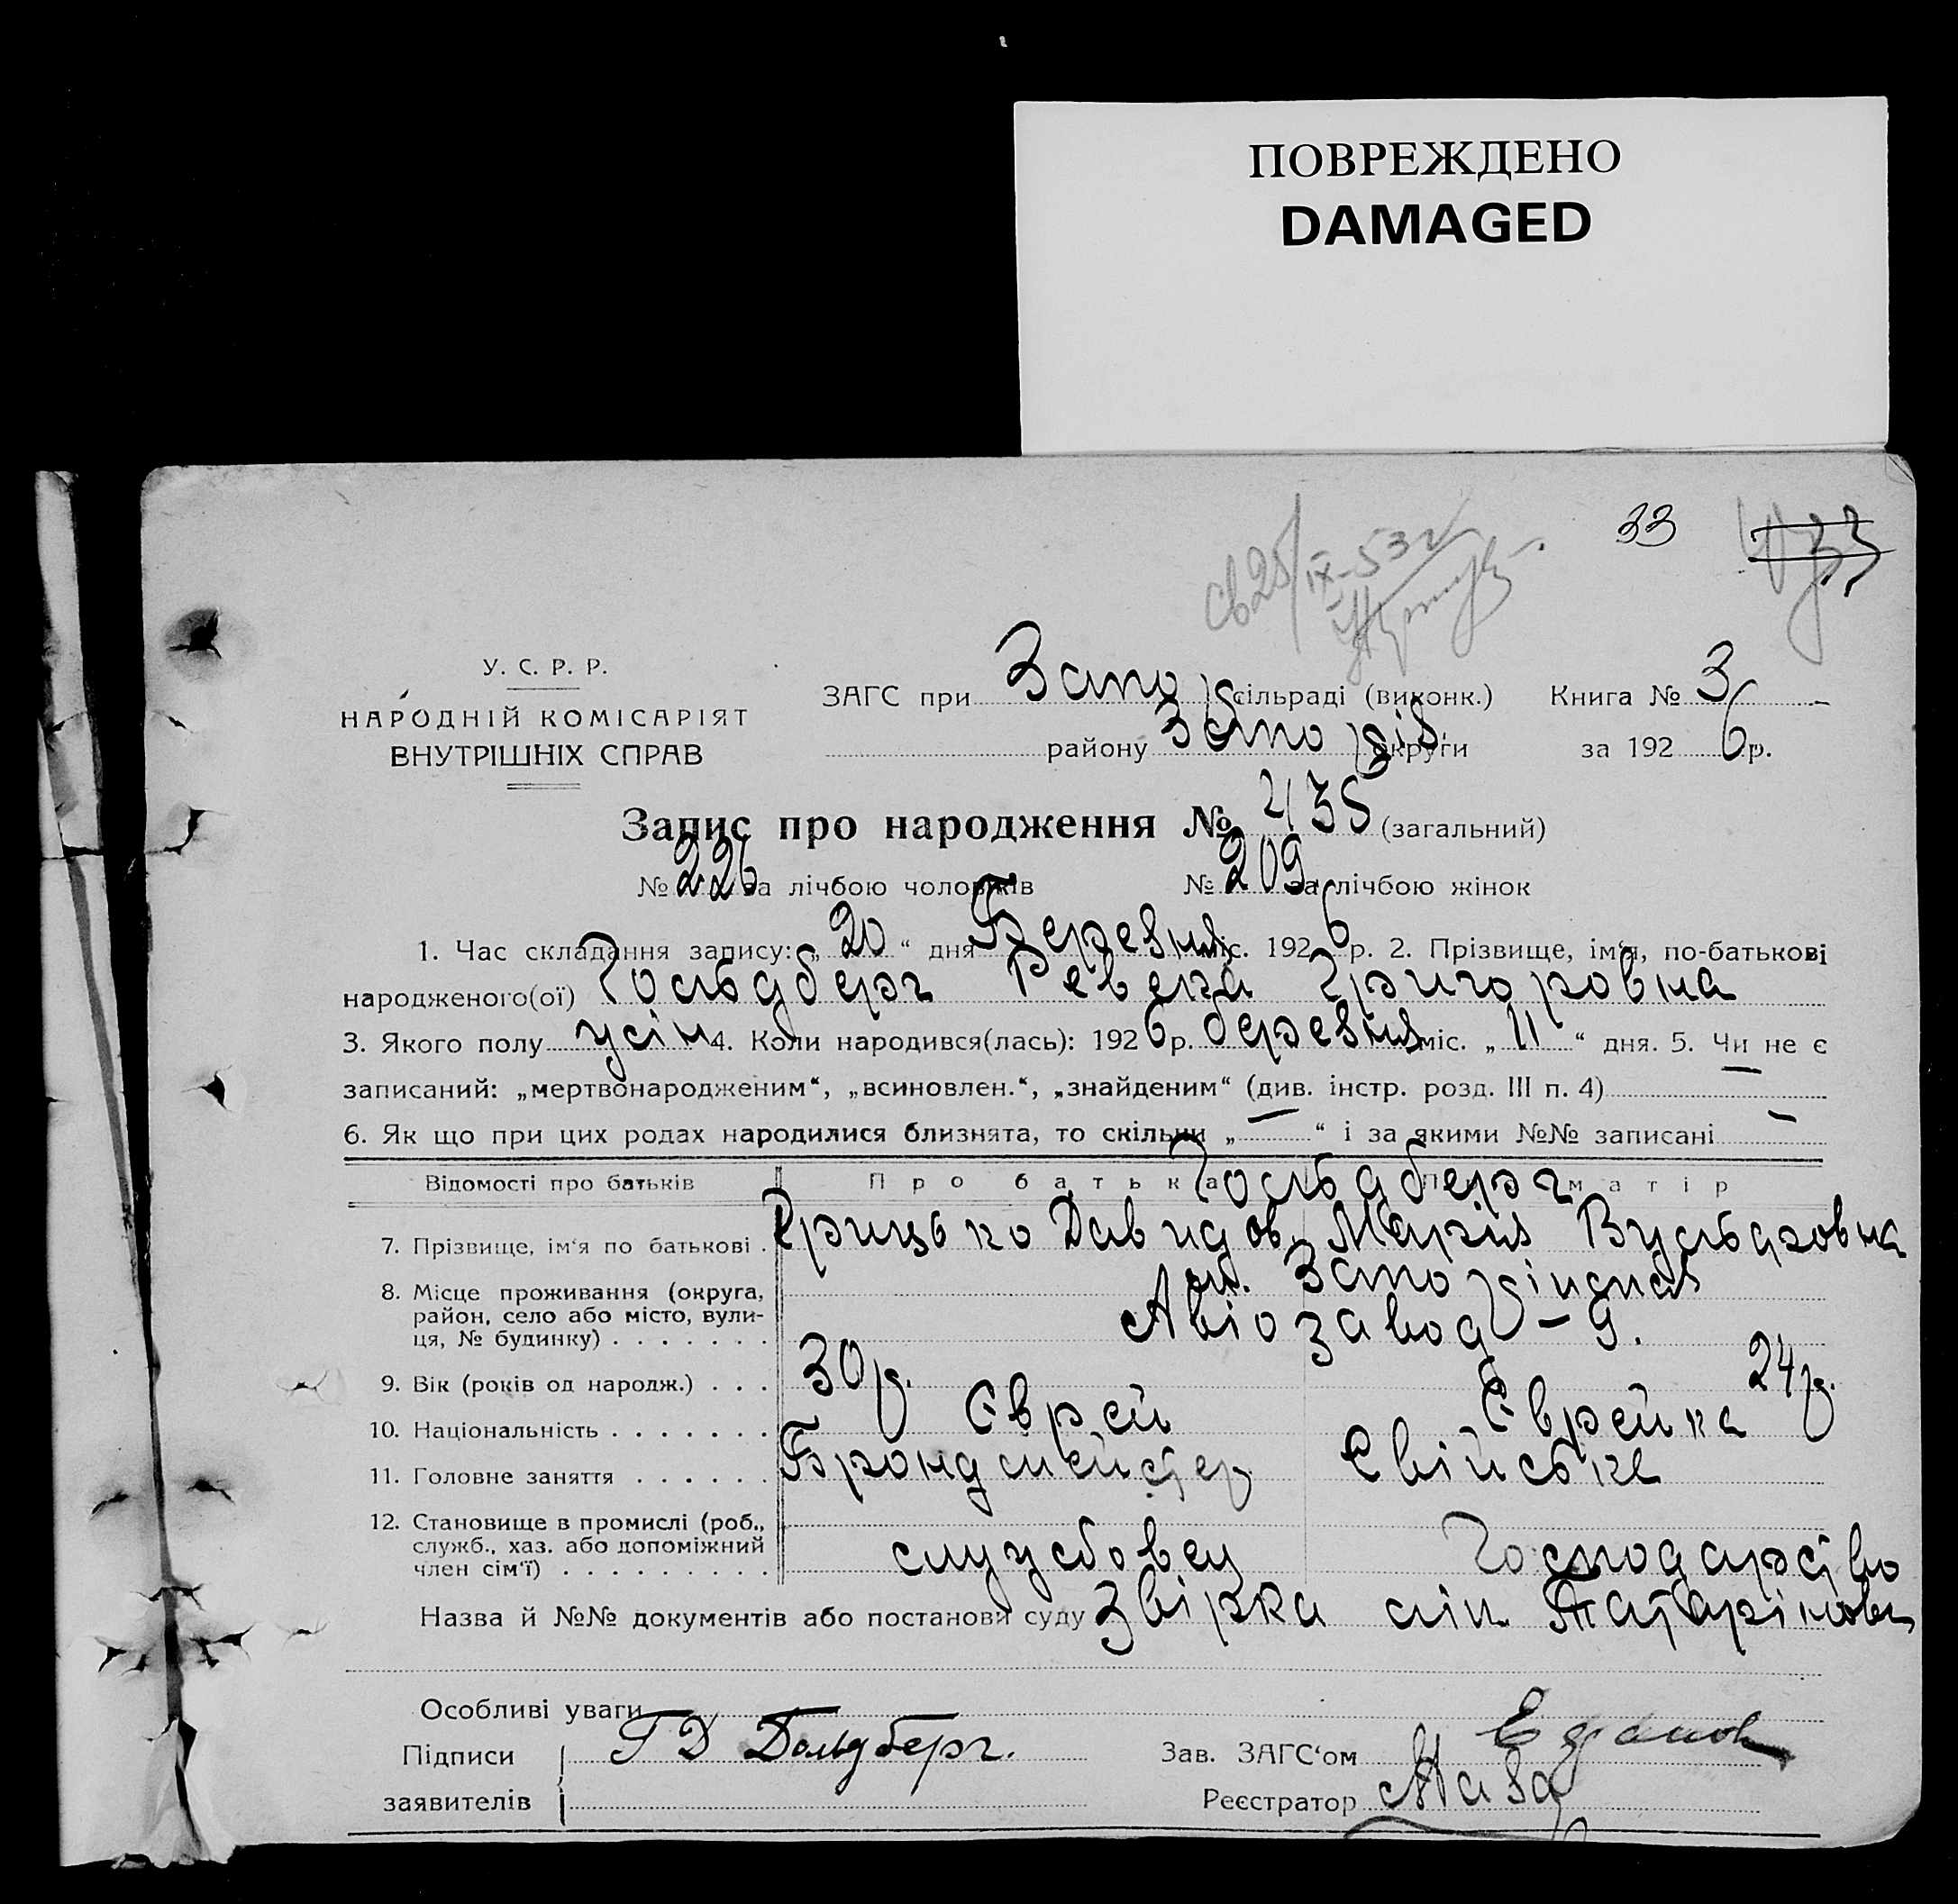 ПОВРЕЖДЕНО
DAMAGED
33
У. С. Р. Р.
НАРОДНІЙ КОМІСАРІЯТ
ВНУТРІШНІХ СПРАВ
ЗАГС при Запор сільраді (виконк.) Книга № 3
району Запоріз. округи за 192 6 р.
Запис про народження № 435 (загальний)
№ 226 за лічбою чоловіків № 209 за лічбою жінок
1. Час складання запису: „ 20 “ дня Березня міс. 192 6 р. 2. Прізвище, ім'я, по-батькові
народженого(ої) Гольдберг Ревека Григоровна
3. Якого полу 4. Коли народився(лась): 192 6 р. березня міс. „ 11 “ дня. 5. Чи не є
записаний: „мертвонародженим“, „всиновлен.“, „знайденим“ (див. інстр. розд. III п. 4) —
6. Як що при цих родах народилися близнята, то скільки „ — “ і за якими №№ записані —
Відомості про батьків Про батька Про матір
Гольдберг
7. Прізвище, ім'я по батькові . Грицько Давидов. Марія Вульфовна
8. Місце проживання (округа, район, село або місто, вулиця, № будинку) . . . . . . . м. Запоріжжя
Авіозавод – 9.
9. Вік (років од народж.) . . . 30 р. 24 р.
10. Національність . . . . . . . Єврей Єврейка
11. Головне заняття . . . . . . Брондмейстер Свійське
12. Становище в промислі (роб., служб., хаз. або допоміжний член сім'ї) . . . . . . . . . службовец Господарство
Назва й №№ документів або постанови суду Звірка
Особливі уваги
Підписи заявителів Г Д Гольдберг.
Зав. ЗАГС'ом
Реєстратор